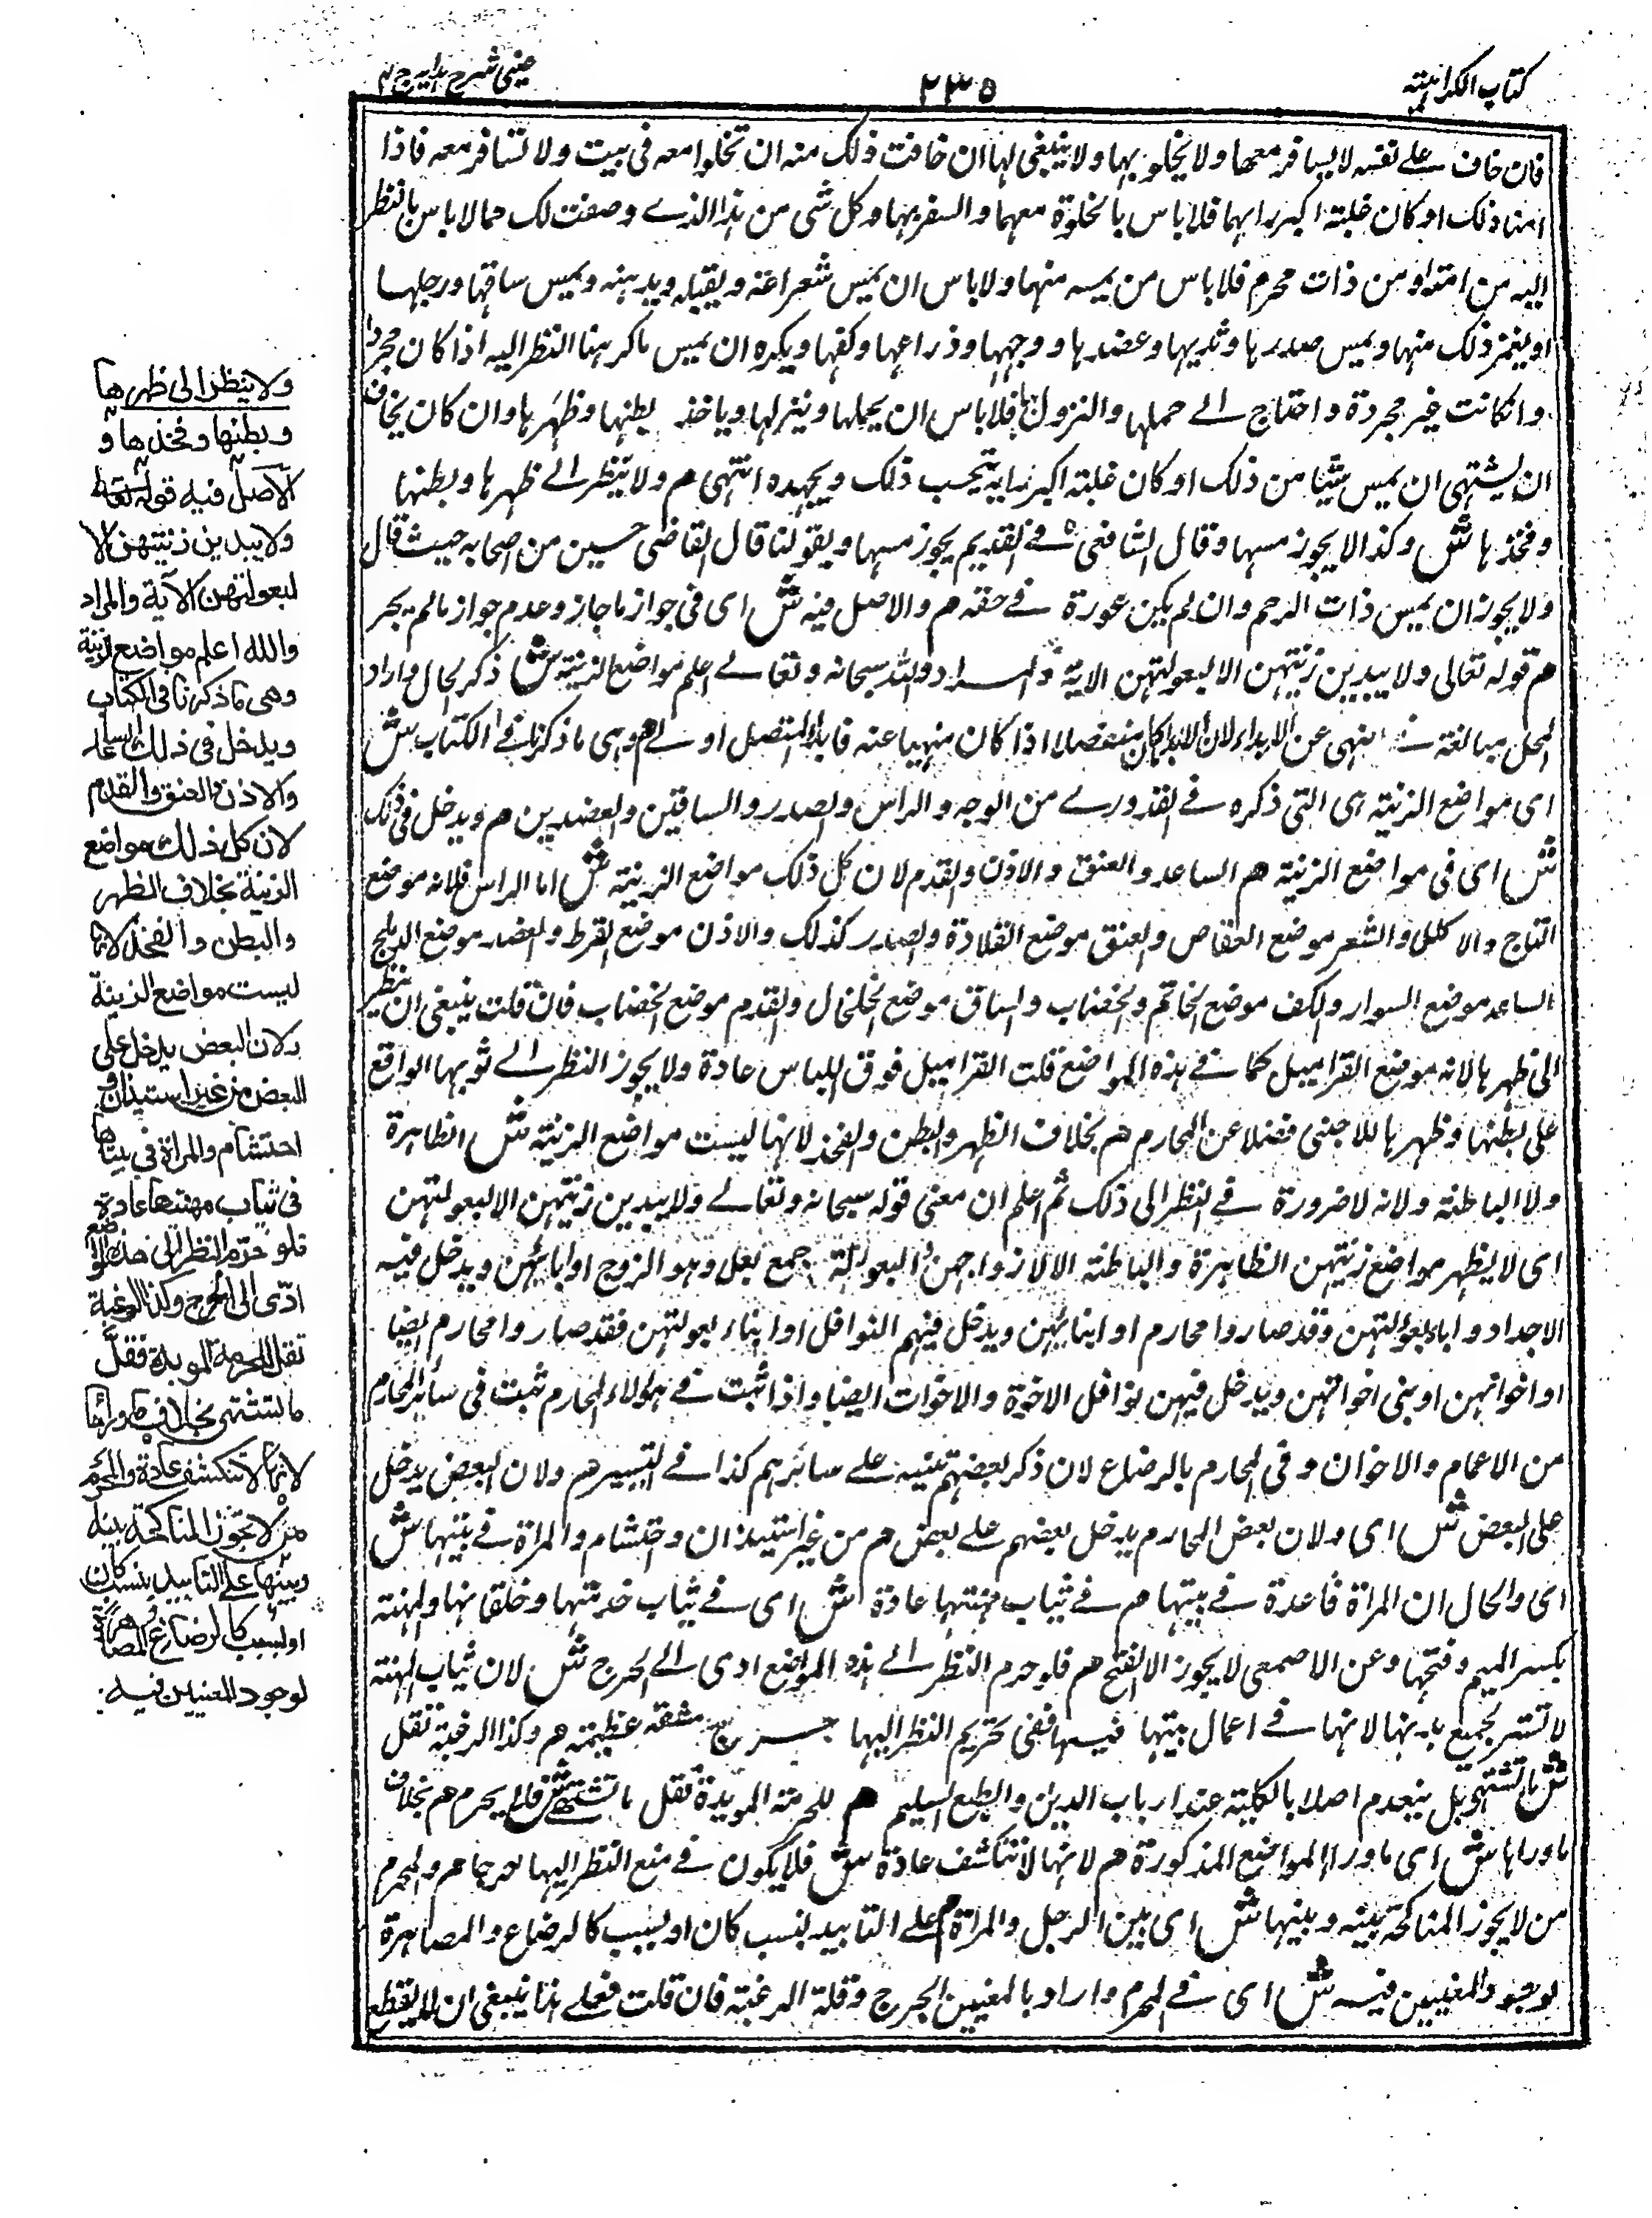 كتاب الكراهية
٢٣٥
عينى شرح هدايه ج ٤
فان خاف على نفسه لا يسافر معها ولا يخلو بها ولا ينبغى لها ان خافت ذلك منه ان تخلوا معه فى بيت ولا تسافر معه فاذا
امنا ذلك او كان غلبة اكبر رايهما فلا باس بالخلوة معهما والسفر بها وكل شى من هذا الذى وصفت لك مما لا باس بالنظر
اليه من امته او من ذات محرم فلا باس من يمسه منها ولا باس ان يمس شعرا عنه ويقبله ويدهنه ويمس ساقها ورجلها
او يغمز ذلك منها ويمس صدرها وثديها وعضدها ووجهها وذراعها وكفها ويكره ان يمس ماكرهنا النظر اليه اذا كان مجردا
وانكانت غير مجردة واحتاج الى حملها والنزول بها فلا باس ان يحملها وينزلها وياخذ بطنها وظهرها وان كان يخاف
ان يشتهى ان يمس شيئا من ذلك او كان غلبة اكبر رايه يتجنب ذلك ويجهده انتهى م ولا ينظر الى ظهرها وبطنها
وفخذها ش وكذا لا يجوز مسها وقال الشافعى فى القديم يجوز مسها وبقولنا قال القاضى حسين من اصحابه حيث قال
ولا يجوز ان يمس ذات الرحم وان لم يكن عورة فى حقه هم والاصل فيه ش اى فى جواز ما جاز وعدم جواز مالم يجز
هم قوله تعالى ولا يبدين زينتهن الا لبعولتهن الاية والمراد والله سبحانه وتعالى اعلم مواضع الزينة ش ذكر الحال واراد
المحل مبالغة فى النهى عن الابداء لان الابداء كان منفصلا اذا كان منهيا عنه فابداء المتصل اولى هم وهى ماذكرنا فى الكتاب ش
اى مواضع الزينة هى التى ذكره فى القدورى من الوجه والراس والصدر والساقين والعضدين م ويدخل فى ذلك
ش اى فى مواضع الزينة هم الساعد والعنق والاذن والقدم لان كل ذلك مواضع الزينة ش اما الراس فلانه موضع
التاج والاكلل والشعر موضع العقاص والعنق موضع القلادة والصدر كذلك والاذن موضع القرط والعضد موضع الدملج
الساعد موضع السوار والكف موضع الخاتم والخضاب والساق موضع الخلخال والقدم موضع الخضاب فان قلت ينبغى ان ينظر
الى ظهرها لانه موضع القراميل كما فى هذه المواضع قلت القراميل فوق اللباس عادة ولا يجوز النظر الى ثوبها الواقع
على بطنها وظهرها للاجنبى فضلا عن المحارم هم بخلاف الظهر والبطن والفخذ لانها ليست مواضع الزينة ش الظاهرة
ولا الباطنة ولانه لا ضرورة فى النظر الى ذلك ثم اعلم ان معنى قوله سبحانه وتعالى ولا يبدين زينتهن الا لبعولتهن
اى لا يظهر مواضع زينتهن الظاهرة والباطنة الا لازواجهن والبعولة جمع بعل وهو الزوج او ابائهن ويدخل فيه
الاجداد واباء بعولتهن وقد صاروا محارم او ابنائهن ويدخل فيهم النوافل او ابناء بعولتهن فقد صاروا محارم ايضا
او اخوانهن او بنى اخوانهن ويدخل فيهن نوافل الاخوة والاخوات ايضا واذا ثبت فى هؤلاء المحارم ثبت فى سائر المحارم
من الاعمام والاخوان وفى المحارم بالرضاع لان ذكر بعضهم تنبيه على سائرهم كذا فى التيسير هم ولان البعض يدخل
على البعض ش اى ولان بعض المحارم يدخل بعضهم على بعض هم من غير استيذان واحتشام والمراة فى بيتها ش
اى والحال ان المراة قاعدة فى بيتها م فى ثياب مهنتها عادة ش اى فى ثياب خدمتها وخلقانها والمهنة
بكسر الميم وفتحها وعن الاصمعى لا يجوز الا الفتح هم فلو حرم النظر الى هذه المواضع ادى الى الحرج ش لان ثياب المهنة
لا تستر لجميع بدنها لانها فى اعمال بيتها فيها ففى تحريم النظر اليها حرج مشقة عظيمة هم وكذا الرغبة تقل
ش ما تشتهى بل ينعدم اصلا بالكلية عند ارباب الدين والطبع السليم هم للحرمة الموبدة فقل ما تشتهى ش فلا يحرم هم بخلاف
ماوراها ش اى ماورا المواضع المذكورة هم لانها لا تنكشف عادة ش فلا يكون فى منع النظر اليها حرجا هم والمحرم
من لا يجوز المناكحة بينه وبينها ش اى بين الرجل والمراة م على التابيد بنسب كان او بسبب كالرضاع والمصاهرة
لوجود المعنيين فيه ش اى فى المحرم واراد بالمعنيين الحرج وقلة الرغبة فان قلت فعلى هذا ينبغى ان لا يقطع
ولا ينظر الى ظهرها
وبطنها وفخذها و
الاصل فيه قوله تعالى
ولا يبدين زينتهن الا
لبعولتهن الآية والمراد
والله اعلم مواضع الزينة
وهى ما ذكرنا فى الكتاب
ويدخل فى ذلك الساعد
والاذن والعنق والقدم
لان كل ذلك مواضع
الزينة بخلاف الظهر
والبطن والفخذ لانها
ليست مواضع الزينة
ولان البعض يدخل على
البعض من غير استيذان و
احتشام والمراة فى بيتها
فى ثياب مهنتها عادة
فلو حرم النظر الى هذه المواضع
ادى الى الحرج وكذا الرغبة
تقل للحرمة الموبدة فقل
ما تشتهى بخلاف ماوراءها
لانها لا تنكشف عادة والمحرم
من لا تجوز المناكحة بينه
وبينها على التابيد بنسب كان
او بسبب كالرضاع والمصاهرة
لوجود المعنيين فيه